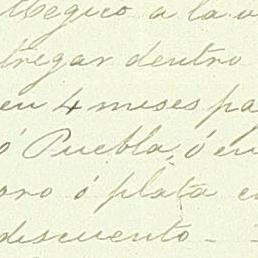 Megico a la v
tregar dentro
en 4 meses pa
ó Puebla, ó en
oro ó plata co
descuento - -